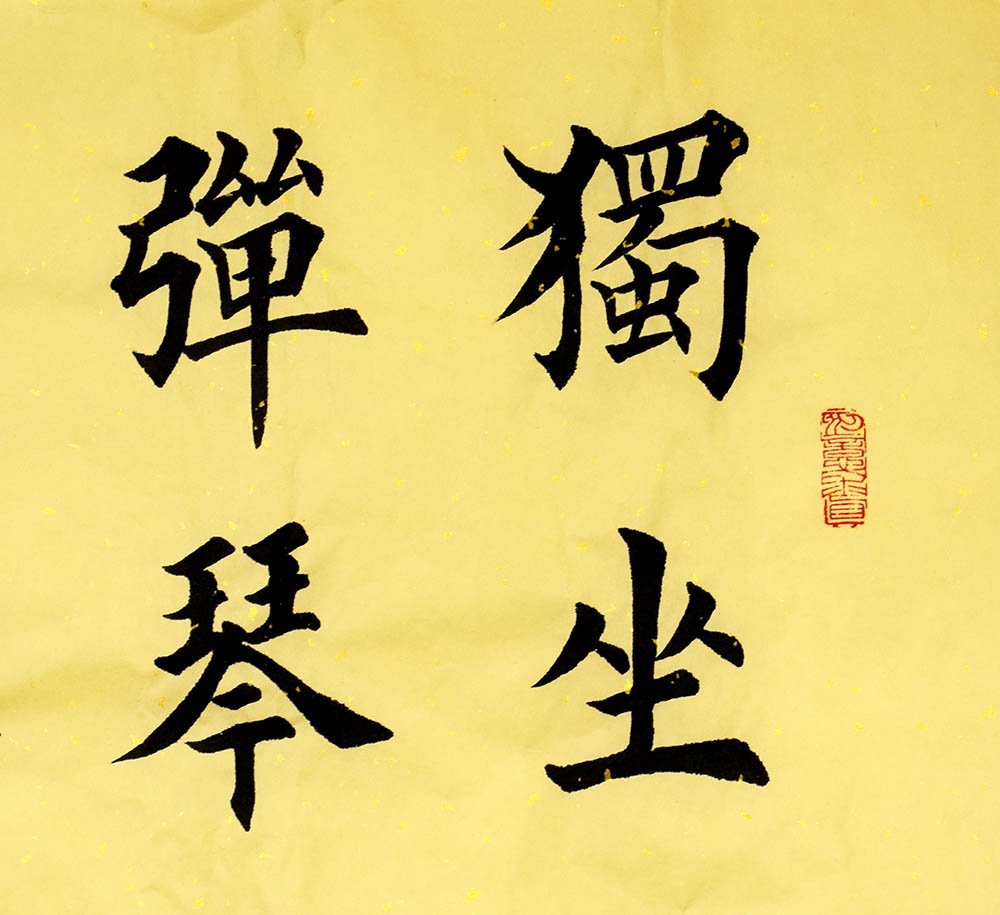 獨坐
彈琴